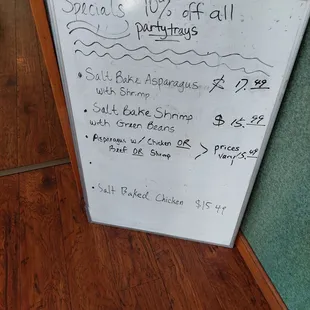 Specials 10% off all
party trays
• Salt Bake Asparagus $ 17.49
with Shrimp
• Salt Bake Shrimp $ 15.99
with Green Beans
• Asparagus w/ Chicken OR > prices
Beef OR Shrimp vary 15.49
•
• Salt Baked Chicken $15.49